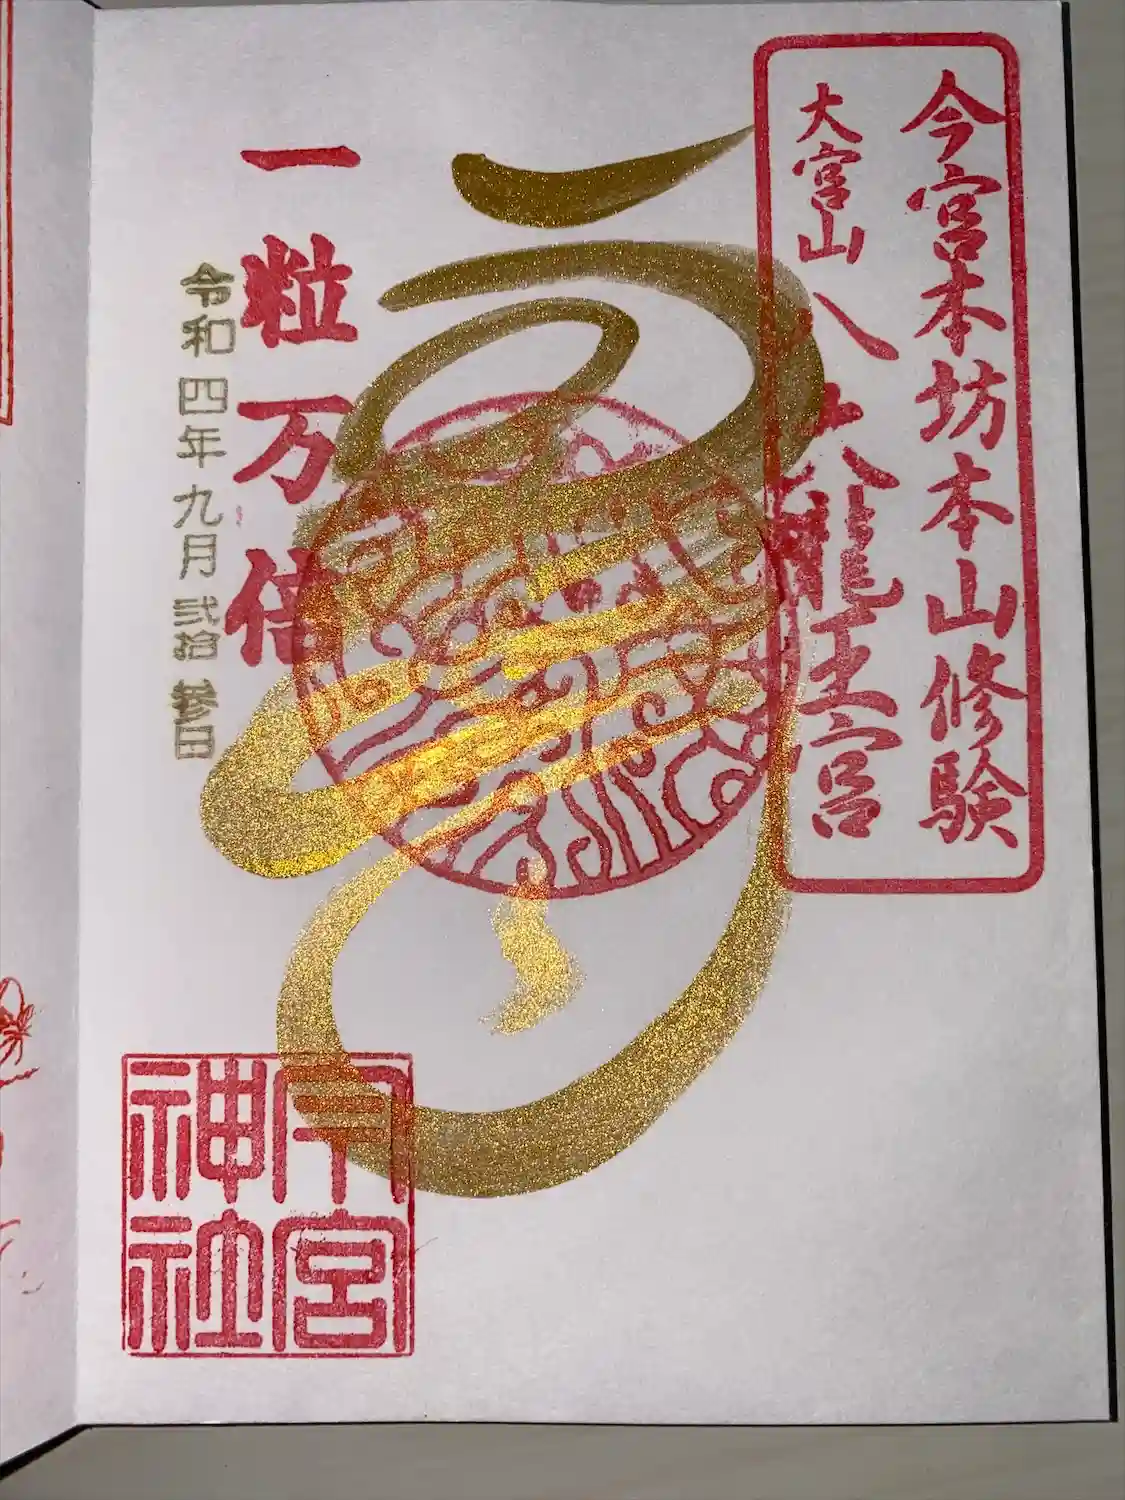 今宮本坊本山修験
大宮山八大龍王宮
一粒万倍
令和四年九月弐拾参日
今宮神社